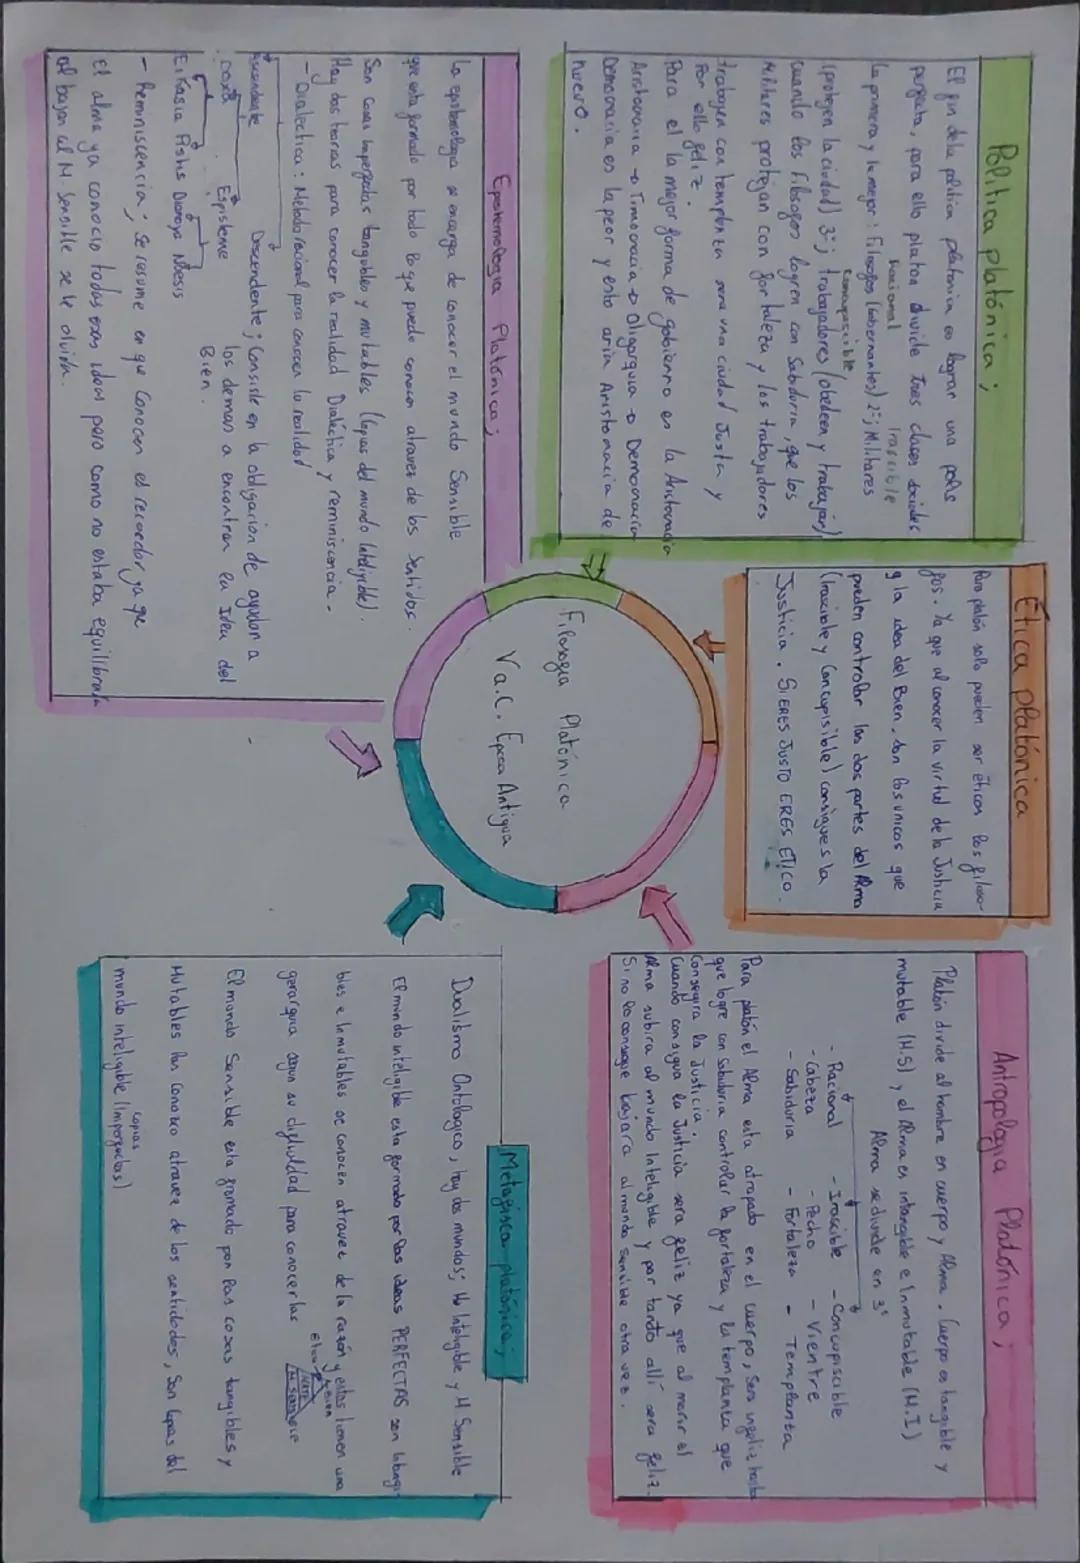 Política platónica;
El fin de la política platonica es lograr una polis
perfecta, para ello platon divide tres clases sociales
Racional Irascible
la primera y la mejor: Filosofos (Gobernantes) 2º; Militares
Concupiscible
(protegen la ciudad) 3º; trabajadores (obedecen y trabajan)
cuando los Filosofos logren con Sabiduria, que los
Militares protejan con fortaleza y los trabajadores
trabajen con templanza sera una ciudad Justa y
Por ello feliz.
Para el la mejor forma de gobierno es la Aristocracia
Aristocracia → Timocracia → Oligarquia → Democracia
Democracia es la peor y esto aria Aristocracia de
nuevo.
Ética platónica
Para platón solo pueden ser éticos los filoso-
fos. Ya que al conocer la virtud de la Justicia
y la idea del Bien, son los unicos que
pueden controlar las dos partes del Alma
(Irascible y Concupisible) consigues la
Justicia. SI ERES JUSTO ERES ETICO.
Antropologia Platónica;
Platón divide al hombre en cuerpo y Alma. Cuerpo es tangible y
mutable (M.S) y el Alma es intangible e Inmutable (M.I)
Alma se divide en 3º
- Racional - Irascible - Concupiscible
- Cabeza - Pecho - Vientre
- Sabiduria - Fortaleza - Templanza
Para platón el Alma esta atrapado en el cuerpo, sera infeliz hasta
que logre con Sabiduria controlar la fortaleza y la templanza que
Conseguira la Justicia.
Cuando consigua la Justicia sera feliz ya que al morir el
Alma subira al mundo Inteligible y por tanto allí sera feliz.
Si no lo consegue bajara al mundo sensible otra vez.
Filosofia Platónica
V a.C. Epoca Antigua
Epistemologia Platónica;
La epistemologia se encarga de conocer el mundo Sensible
que esta formado por todo lo que puedo conocer atraves de los Sentidos.
Son Cosas Imperfectas tangibles y mutables (Copias del mundo Inteligible).
Hay dos teorias para conocer la realidad Dialéctica y reminiscencia.
- Dialectica: Metodo racional para conocer la realidad
Ascendente Descendente; Consiste en la obligacion de ayudar a
los demas a encontrar la Idea del
Bien.
Doxa Episteme
Eikasia Pistis Dianoya Noesis
- Remniscencia; Se resume en que Conocer el recordar ya que
El alma ya conocio todas esas ideas pero como no estaba equilibrada
al bajar al M. Sensible se le olvida.
Metafisca platónica;
Dualismo Ontologico, hay dos mundos; M. Inteligible y M Sensible
El mundo inteligible esta formado por las ideas PERFECTAS son Intangi-
bles e Inmutables se conocen atravez de la razón y estas tienen una
gerarquia segun su dificuldad para conocerlas
Bien
M sensible
El mundo Sensible esta fromado por las cosas tangibles y
Mutables las conozco atravez de los sentidodes, Son Copias del
copias
mundo inteligible (Imperfectas)